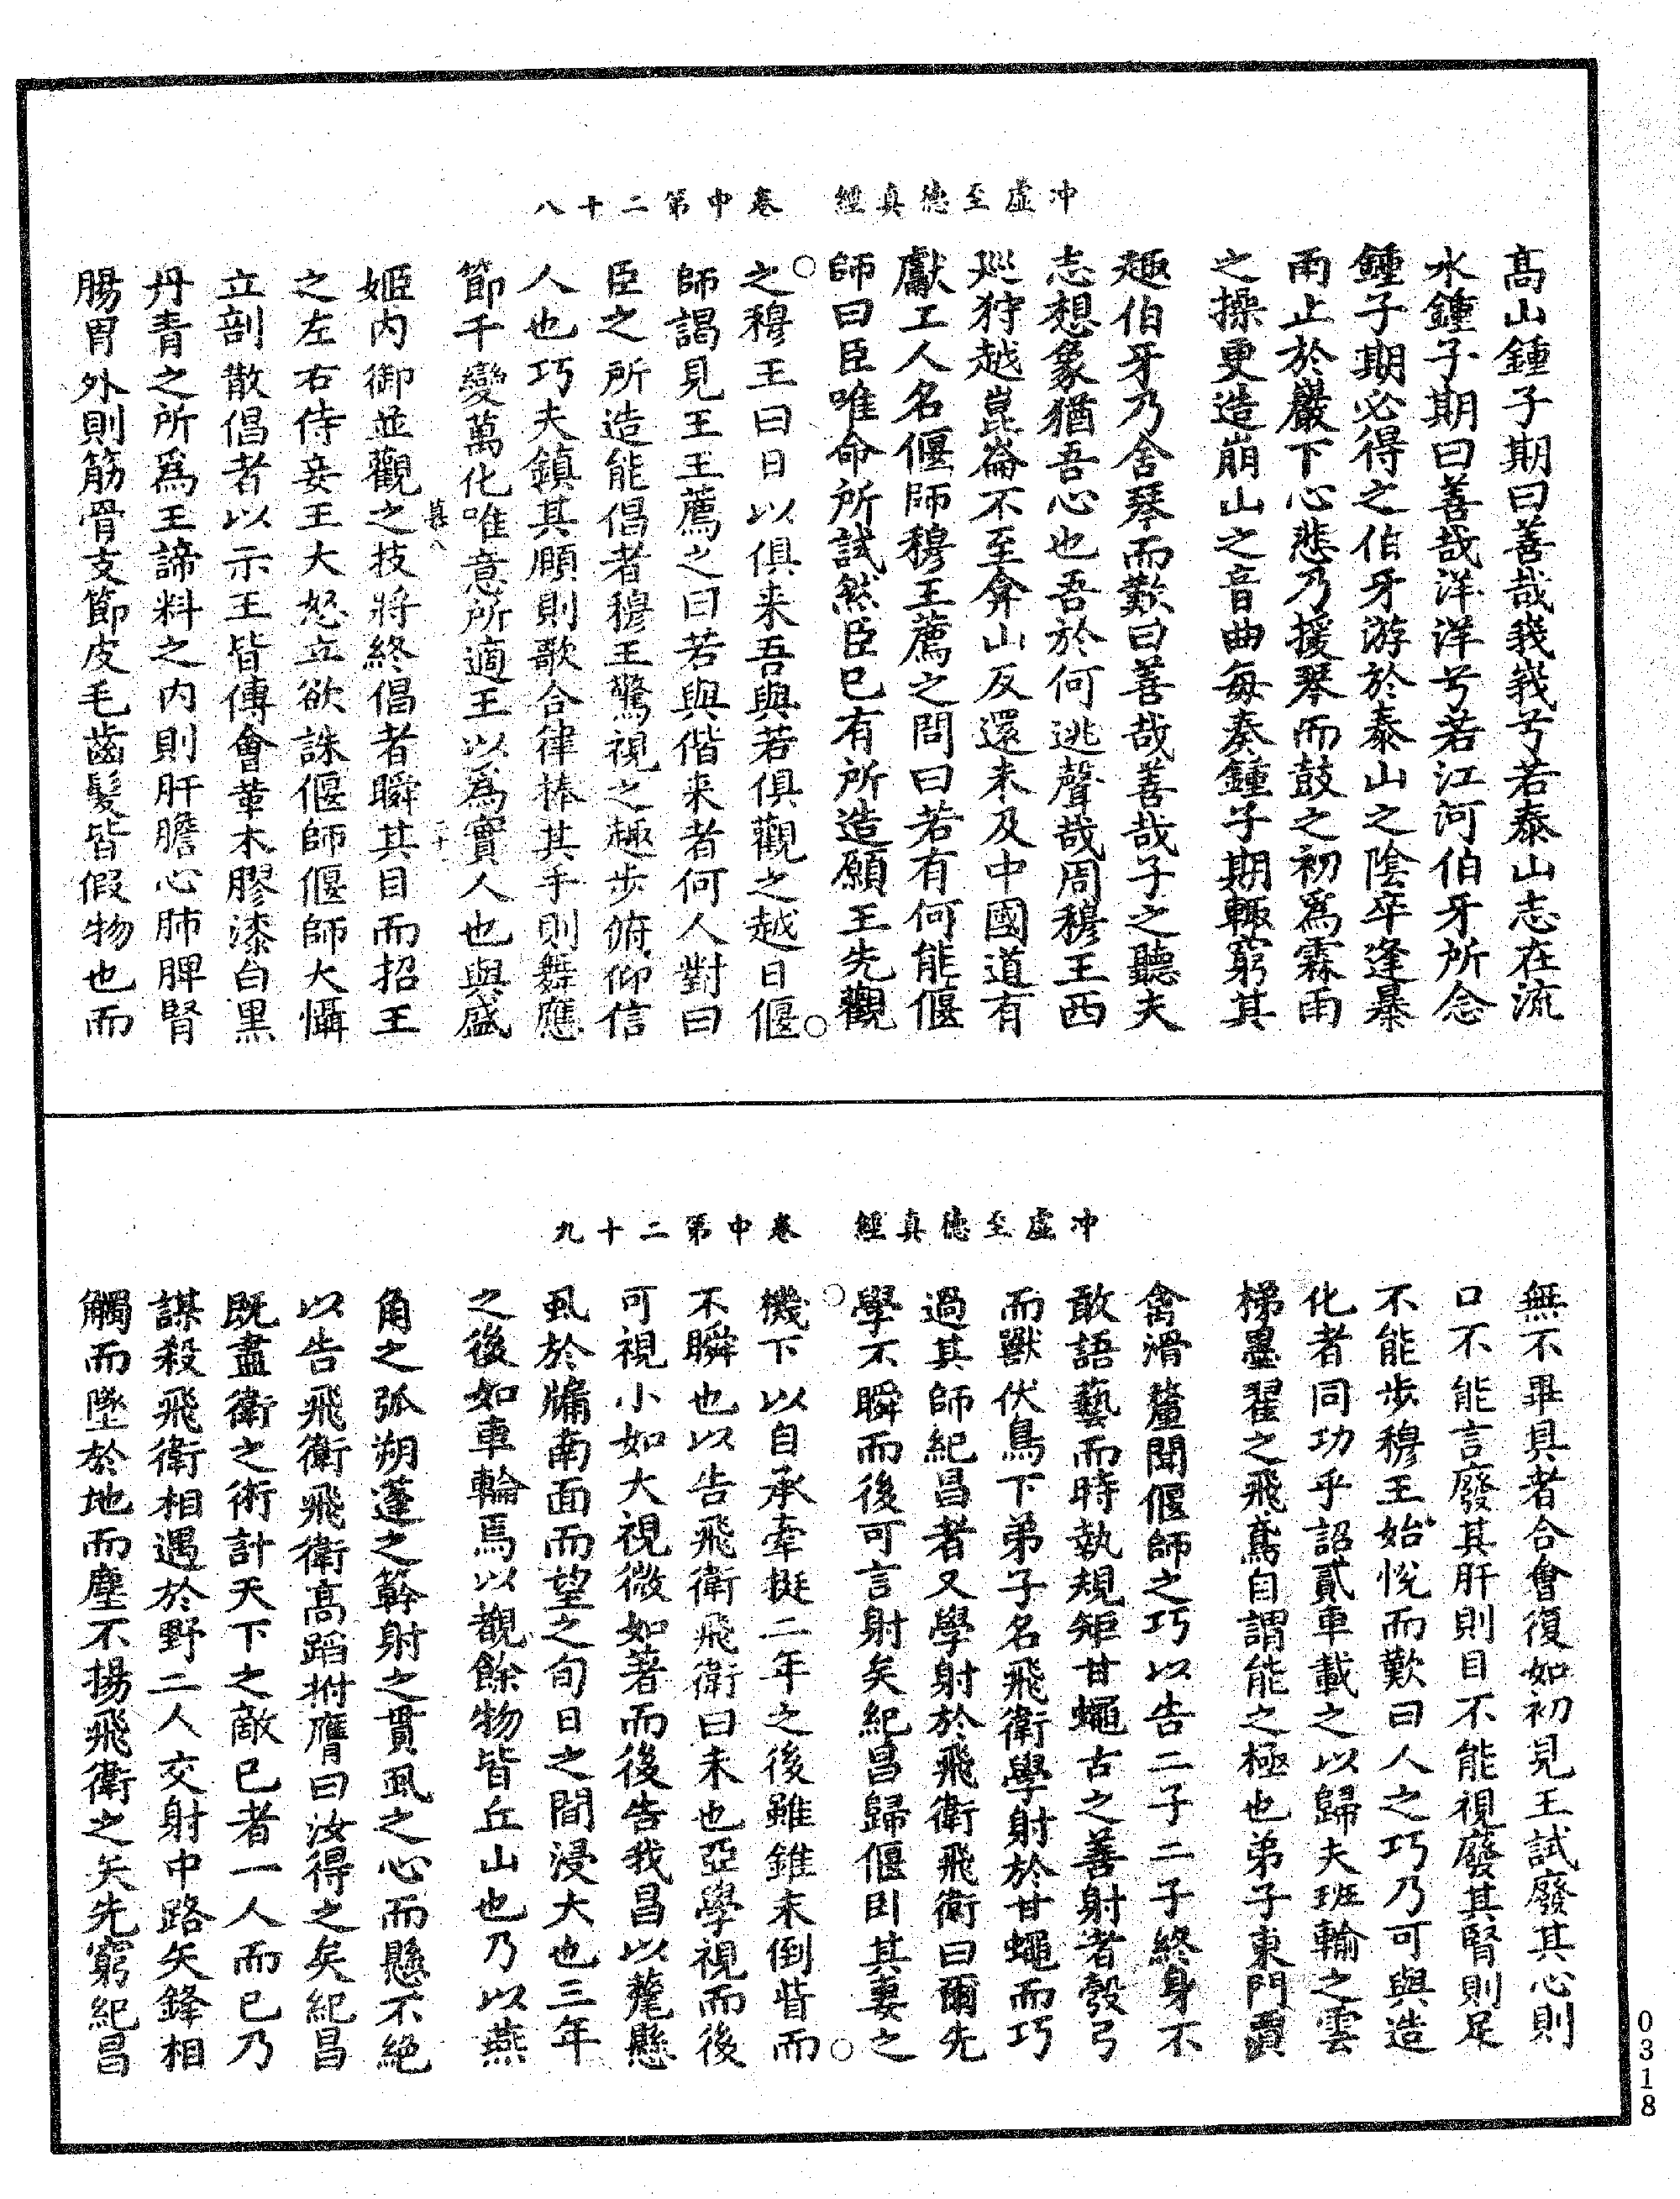 冲虛至德真經　卷中第二十八
高山鍾子期曰善哉峩峩兮若泰山志在流
水鍾子期曰善哉洋洋兮若江河伯牙所念
鍾子期必得之伯牙游於泰山之陰卒逢暴
雨止於巖下心悲乃援琴而鼓之初爲霖雨
之操更造崩山之音曲每奏鍾子期輒窮其
趣伯牙乃舍琴而歎曰善哉善哉子之聽夫
志想象猶吾心也吾於何逃聲哉周穆王西
巡狩越崑崙不至弇山反還未及中國道有
獻工人名偃師穆王薦之問曰若有何能偃
師曰臣唯命所試然臣已有所造願王先觀
之穆王曰日以俱来吾與若俱觀之越日偃
師謁見王王薦之曰若與偕来者何人對曰
臣之所造能倡者穆王驚視之趣步俯仰信
人也巧夫鎮其頤則歌合律捧其手則舞應
節千變萬化唯意所適王以爲實人也與盛
姬内御並觀之技將終倡者瞬其目而招王
之左右侍妾王大怒立欲誅偃師偃師大懾
立剖散倡者以示王皆傳會革木膠漆白黒
丹青之所爲王諦料之内則肝膽心肺脾腎
腸胃外則筋骨支節皮毛齒髮皆假物也而
冲虛至德真經　卷中第二十九
無不畢具者合會復如初見王試廢其心則
口不能言廢其肝則目不能視廢其腎則足
不能步穆王始悅而歎曰人之巧乃可與造
化者同功乎詔貳車載之以歸夫班輸之雲
梯墨翟之飛鳶自謂能之極也弟子東門賈
禽滑釐聞偃師之巧以告二子二子終身不
敢語藝而時執規矩甘蠅古之善射者彀弓
而獸伏鳥下弟子名飛衛學射於甘蠅而巧
過其師紀昌者又學射於飛衛飛衛曰爾先
學不瞬而後可言射矣紀昌歸偃卧其妻之
機下以自承牽挺二年之後雖錐末倒眥而
不瞬也以告飛衛飛衛曰未也亞學視而後
可視小如大視微如著而後告我昌以氂懸
虱於牖南面而望之旬日之間浸大也三年
之後如車輪焉以覩餘物皆丘山也乃以燕
角之弧朔蓬之簳射之貫虱之心而懸不絶
以告飛衛飛衛高蹈拊膺曰汝得之矣紀昌
既盡衛之術計天下之敵已者一人而已乃
謀殺飛衛相遇於野二人交射中路矢鋒相
觸而墜於地而塵不揚飛衛之矢先窮紀昌
0318